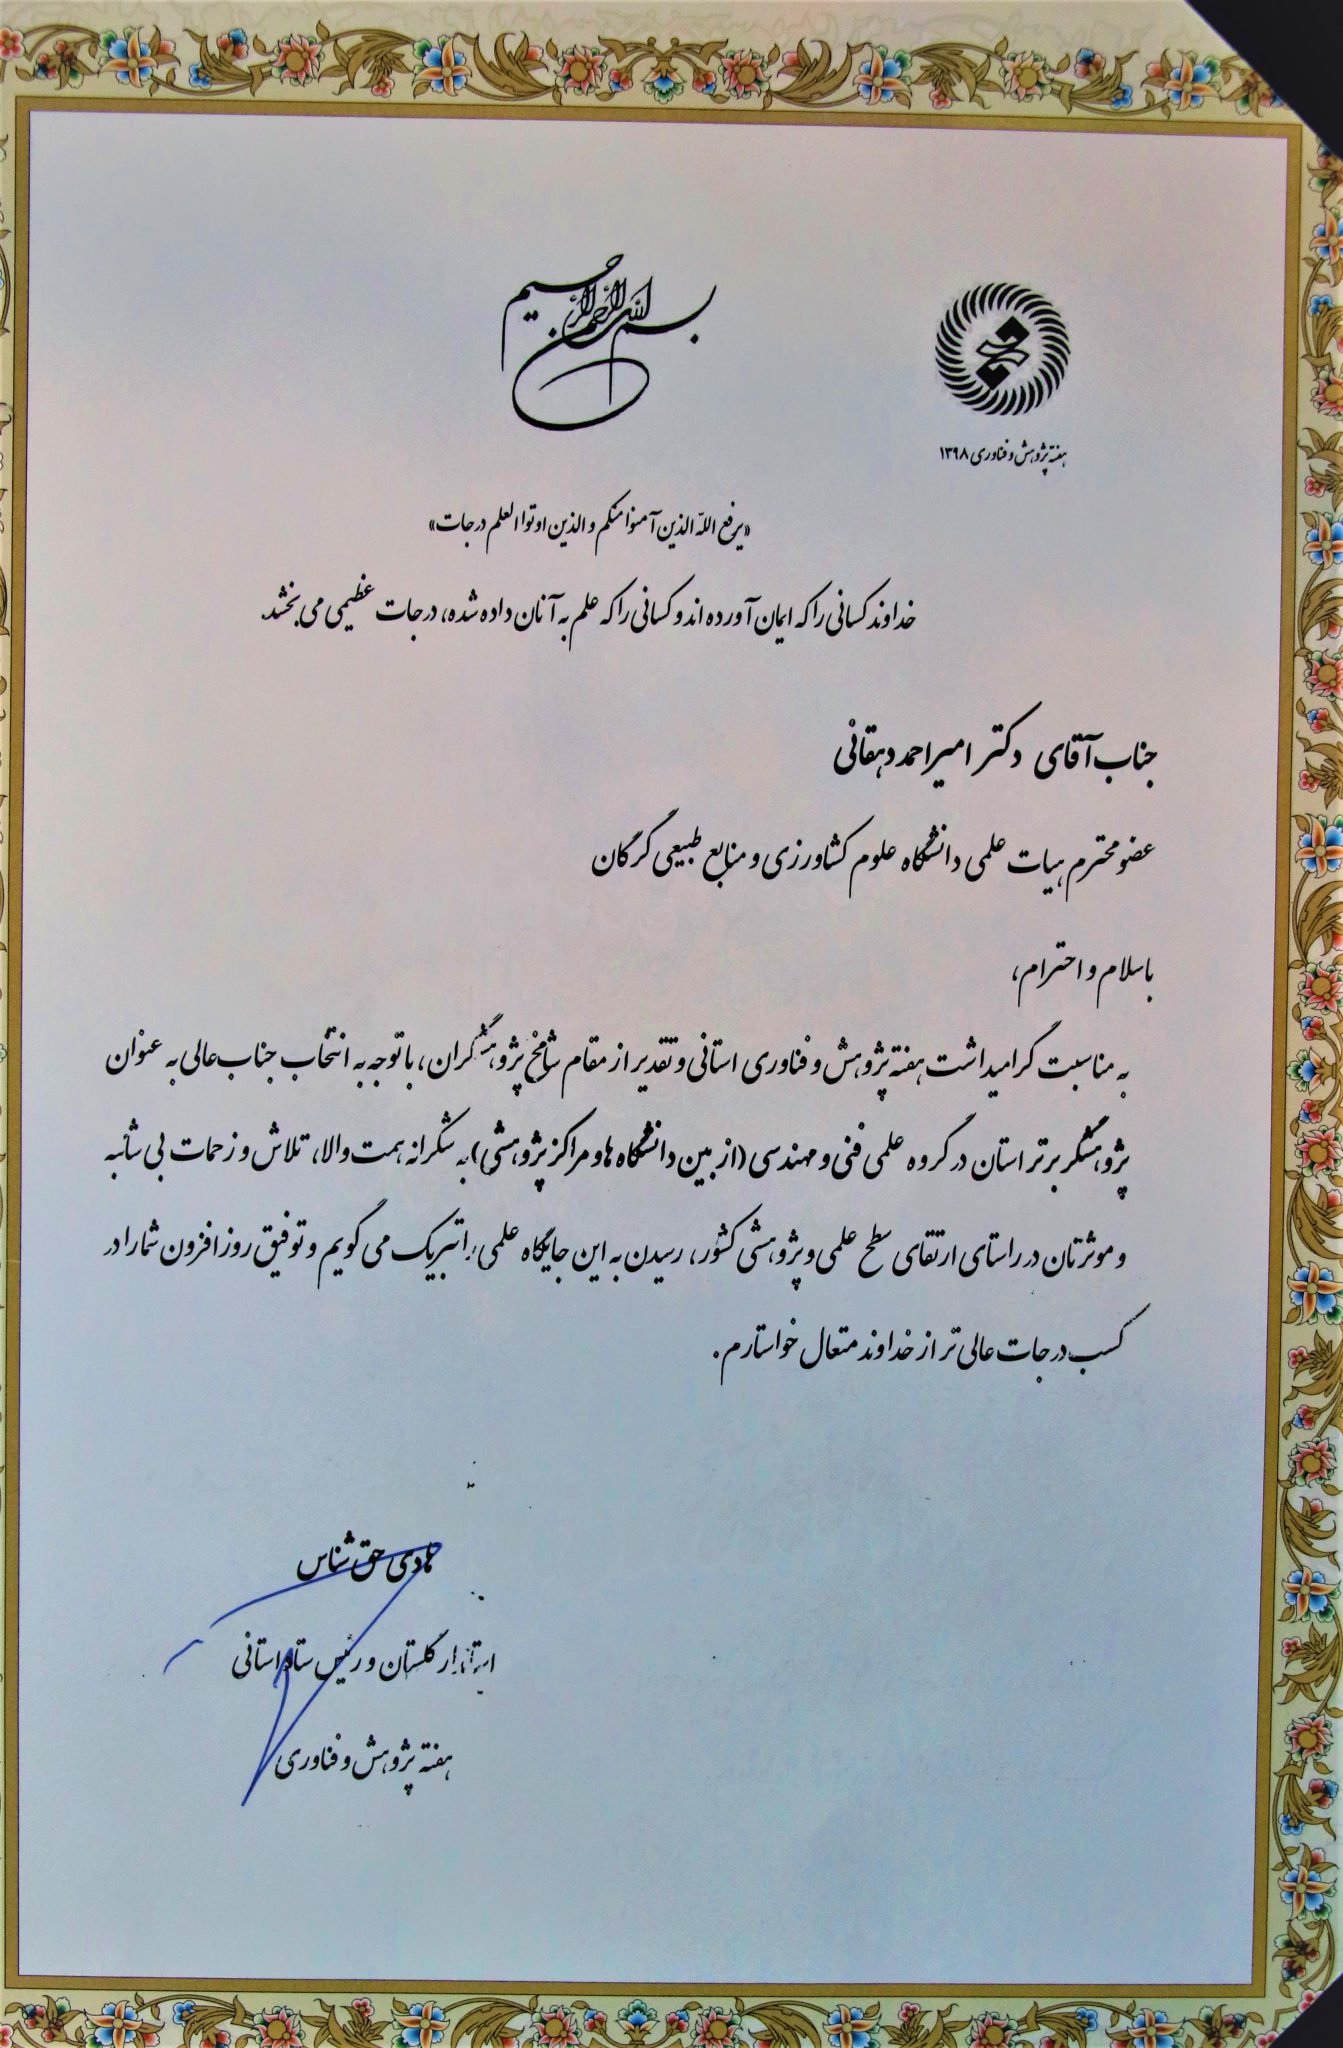 بسم الله الرحمن الرحیم
هفته پژوهش و فناوری ۱۳۹۸
«یرفع الله الذین آمنوا منکم و الذین اوتوا العلم درجات»
خداوند کسانی را که ایمان آورده اند و کسانی را که علم به آنان داده شده، درجات عظیمی می بخشد.
جناب آقای دکتر امیراحمد دهقانی
عضو محترم هیات علمی دانشگاه علوم کشاورزی و منابع طبیعی گرگان
با سلام و احترام،
به مناسبت گرامیداشت هفته پژوهش و فناوری استانی و تقدیر از مقام شامخ پژوهشگران، با توجه به انتخاب جناب عالی به عنوان
پژوهشگر برتر استان در گروه علمی فنی و مهندسی (از بین دانشگاه ها و مراکز پژوهشی) به شکرانه همت والا، تلاش و زحمات بی شائبه
و موثرتان در راستای ارتقای سطح علمی و پژوهشی کشور، رسیدن به این جایگاه علمی را تبریک می گویم و توفیق روز افزون شما را در
کسب درجات عالی تر از خداوند متعال خواستارم.
هادی حق شناس
استاندار گلستان و رئیس ستاد استانی
هفته پژوهش و فناوری